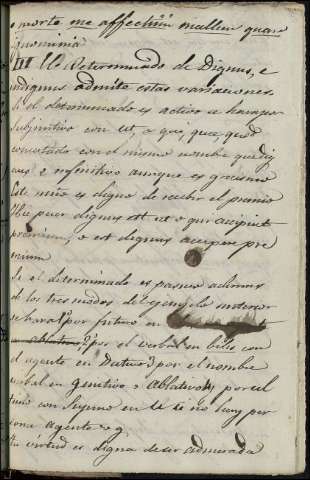 o morte me affectum mallem quam
ignominia
III El determinado de Dignus, e
indignus admite estas variaciones
Si el determinado es activo se hara por
subjuntivo con ut, o qui, quæ, quod
concertado con el mismo nombre que dig
nus e infinitivo aunque es grecismo
Este niño es digno de recibir el premio
Hic puer dignus est ut o qui accipiat
premium, o est dignus accipere pre
mium
Si el determinado es pasivo ademas
de los tres modos de l ejemplo anterior
se hara 1º por futuro en
2º por el verbal en bilis con
el agente en Dativo 3º por el nombre
verbal en genitivo o Ablativo 4º por el
tudo con supino en u si no hay per
sona agente v g
La virtud es digna de ser admirada